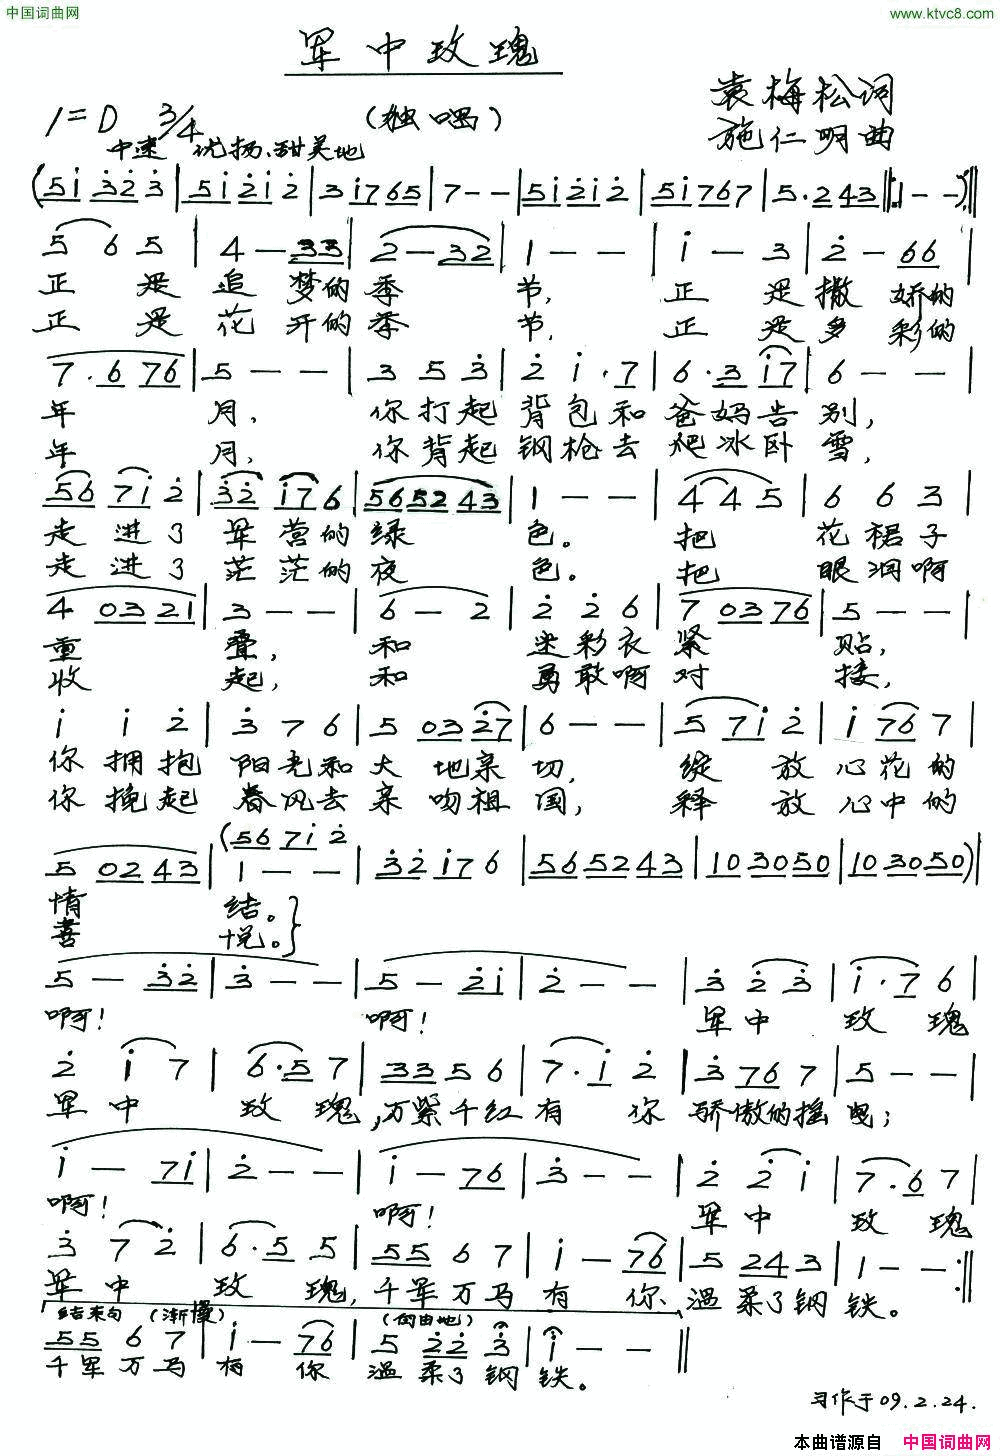 中国词曲网 www.ktvc8.com
军中玫瑰
(独唱)
袁梅松词
施仁明曲
1=D 3/4
中速 优扬、甜美地
(5i 3̇2̇3̇|5i2̇i2̇|3i765|7--|5i2̇i2̇|5i767|5.243‖:1--):‖
5 6 5|4-33|2-32|1--|i-3|2̇-66|
正是追梦的季节,正是撒娇的
正是花开的季节,正是多彩的
7.676|5--|3 5 3̇|2̇ i.7|6.3 i7|6--|
年月,你打起背包和爸妈告别,
年月,你背起钢枪去爬冰卧雪,
56 7i 2̇|3̇2̇ i76|565243|1--|4 4 5|6 6 3|
走进了军营的绿色。把花裙子
走进了茫茫的夜色。把眼泪啊
4 0321|3--|6-2|2̇ 2̇ 6|7 0376|5--|
重叠,和迷彩衣紧贴,
收起,和勇敢啊对接,
i i 2̇|3̇ 7 6|5 032̇7|6--|5 7i 2̇|i 76 7|
你拥抱阳光和大地亲切,绽放心花的
你挽起春风去亲吻祖国,释放心中的
(56 7i 2̇
5 0243|1--|3̇2̇i76|565243|103050|103050)|
情结。
喜悦。
5-3̇2̇|3̇--|5-2̇i|2̇--|3̇ 2̇ 3̇|i.7 6|
啊!啊!军中玫瑰
2̇ i 7|6.5 7|33 5 6|7.i 2̇|3̇ 76 7|5--|
军中玫瑰,万紫千红有你骄傲的摇曳;
i-7i|2̇--|i-76|3̇--|2̇ 2̇ i|7.6 7|
啊!啊!军中玫瑰
3̇ 7 2̇|6.5 5|55 6 7|i-76|5 243|1--:‖
军中玫瑰,千军万马有你、温柔了钢铁。
结束句 (渐慢) (自由地)
55 6 7|i-76|5 2̇2̇ 3̇|i--‖
千军万马有你温柔了钢铁。
习作于09.2.24.
本曲谱源自 中国词曲网